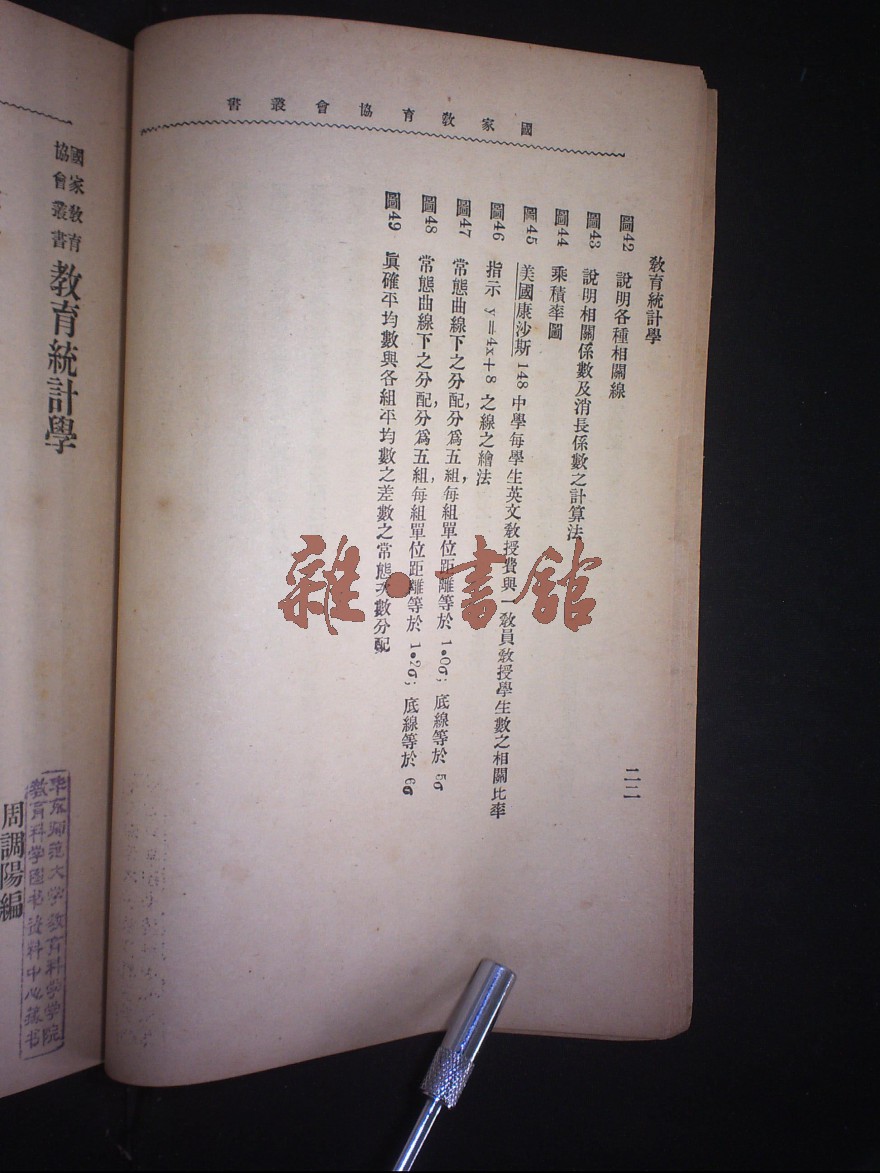 國家教育協會叢書
教育統計學
圖42 說明各種相關線
圖43 說明相關係數及消長係數之計算法
圖44 乘積率圖
圖45 美國康沙斯148中學每學生英文教授費與一教員教授學生數之相關比率
圖46 指示 y=4x+8 之線之繪法
圖47 常態曲線下之分配,分爲五組,每組單位距離等於 1.0σ; 底線等於 5σ
圖48 常態曲線下之分配,分爲五組,每組單位距離等於 1.2σ; 底線等於 6σ
圖49 眞確平均數與各組平均數之差數之常態次數分配
二二
國家教育
協會叢書
教育統計學
周調陽編
华东师范大学教育科学学院
教育科学图书资料中心藏书
雜·書館